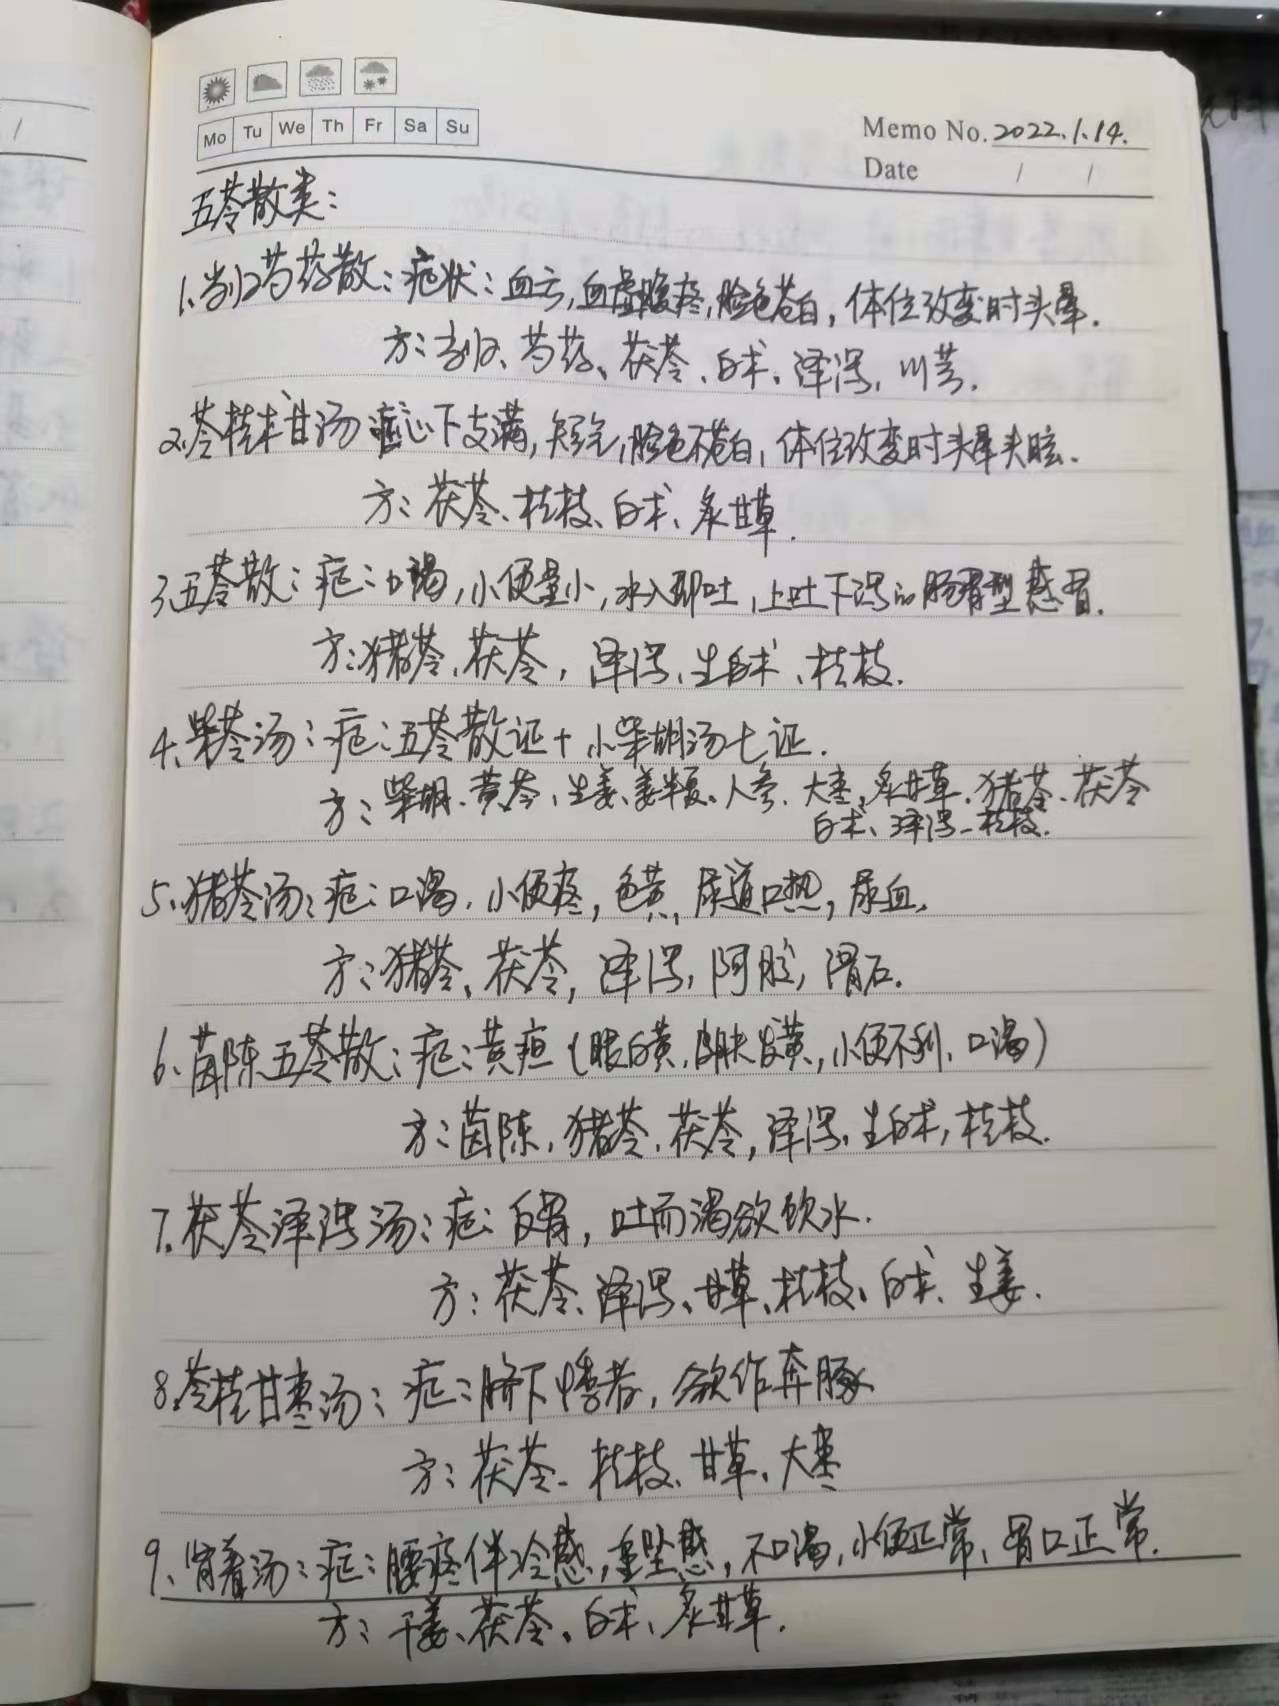 Mo Tu We Th Fr Sa Su
Memo No. 2022.1.14.
Date / /
五苓散类:
1.当归芍药散:症状:血亏,血虚腹疼,脸色苍白,体位改变时头晕.
方:当归、芍药、茯苓、白术、泽泻,川芎.
2.苓桂术甘汤 症心下支满,短气,脸色不苍白,体位改变时头晕头眩.
方:茯苓、桂枝、白术、炙甘草.
3.五苓散:症:口渴,小便量小,水入即吐,上吐下泻的肠胃型感冒.
方:猪苓,茯苓,泽泻、生白术、桂枝.
4.柴苓汤:症:五苓散证+小柴胡汤七证.
方:柴胡、黄芩、生姜、姜半夏、人参、大枣,炙甘草.猪苓、茯苓
白术、泽泻-桂枝.
5.猪苓汤:症:口渴,小便疼,色黄,尿道口热,尿血,
方:猪苓、茯苓,泽泻,阿胶,滑石.
6.茵陈五苓散:症:黄疸(眼白黄,皮肤发黄,小便不利、口渴)
方:茵陈,猪苓,茯苓,泽泻,生白术,桂枝.
7.茯苓泽泻汤:症:反胃,吐而渴欲饮水.
方:茯苓、泽泻、甘草、桂枝、白术、生姜.
8.苓桂甘枣汤:症:脐下悸者,欲作奔豚
方:茯苓-桂枝、甘草、大枣
9、肾着汤:症:腰疼伴冷感,重坠感,不口渴,小便正常、胃口正常.
方:干姜、茯苓、白术、炙甘草.